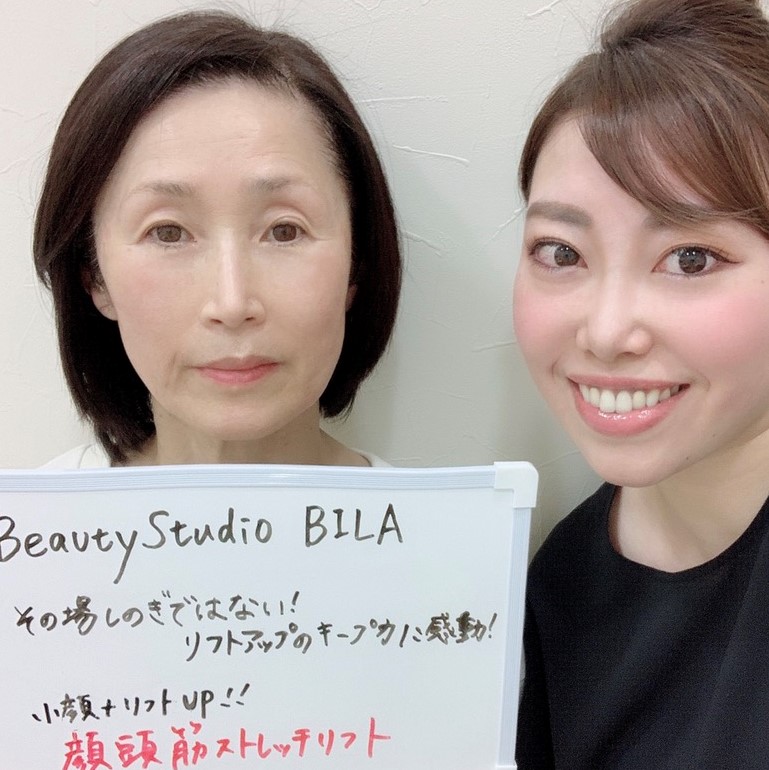 Beauty Studio BILA
その場しのぎではない!
リフトアップのキープ力に感動!
小顔+リフトUP!!
顔頭筋ストレッチリフト